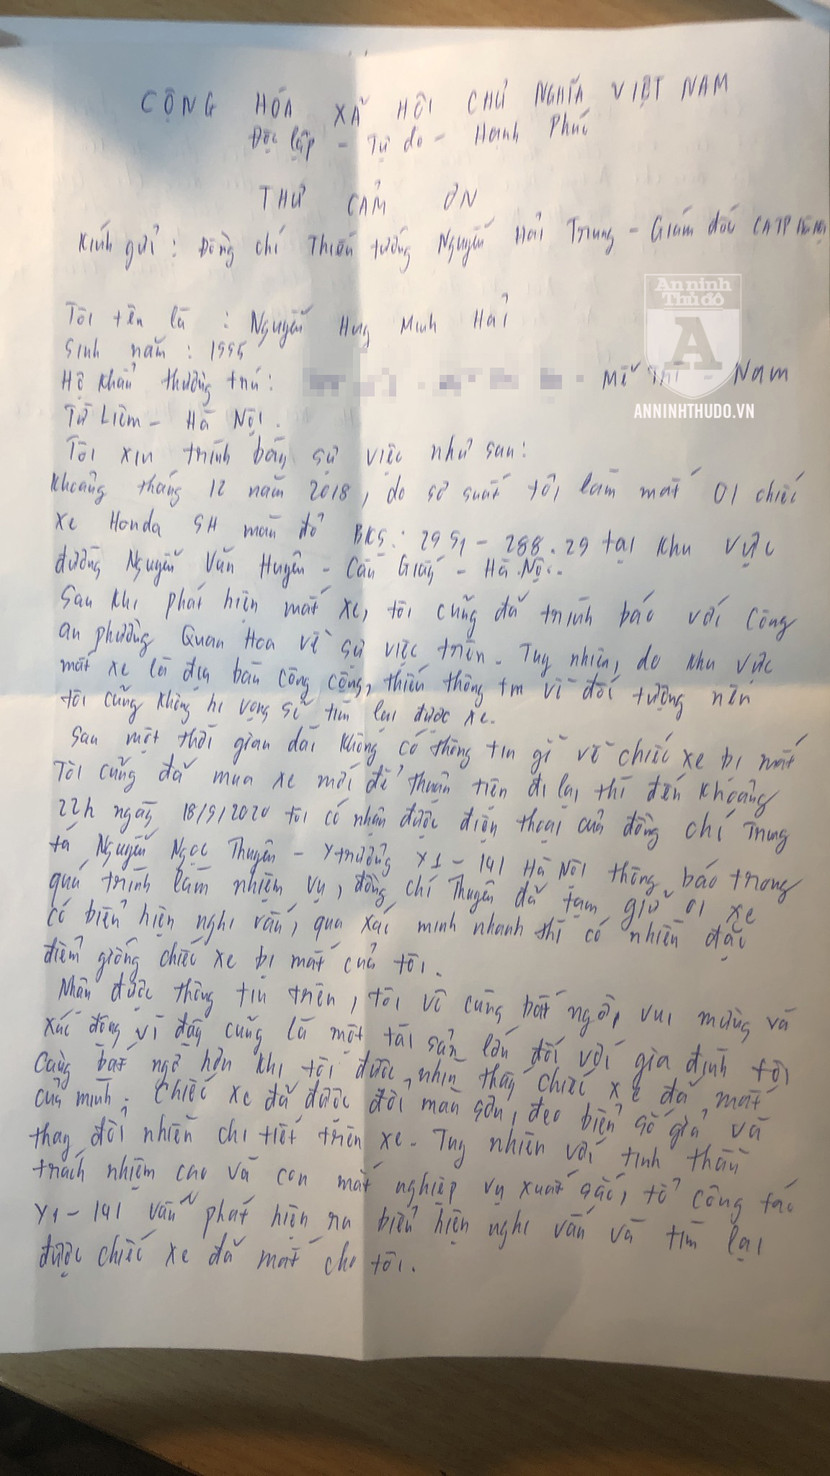 CỘNG HÓA XÃ HỘI CHỦ NGHĨA VIỆT NAM
Độc lập - Tự do - Hạnh Phúc
THƯ CẢM ƠN
Kính gửi : Đồng chí Thiếu tướng Nguyễn Hải Trung - Giám đốc CATP Hà Nội
An ninh
Thủ đô
A
ANNINHTHUDO.VN
Tôi tên là : Nguyễn Huy Minh Hải
Sinh năm : 1995
Hộ khẩu thường trú: Mễ Trì - Nam
Từ Liêm - Hà Nội.
Tôi xin trình bày sự việc như sau:
Khoảng tháng 12 năm 2018, do sơ suất tôi làm mất 01 chiếc
xe Honda SH màu đỏ BKS: 29S1 - 288.29 tại khu vực
đường Nguyễn Văn Huyên - Cầu Giấy - Hà Nội.
Sau khi phát hiện mất xe, tôi cũng đã trình báo với Công
an phường Quan Hoa về sự việc trên. Tuy nhiên, do khu vực
mất xe là địa bàn công cộng, thiếu thông tin về đối tượng nên
tôi cũng không hi vọng sẽ tìm lại được xe.
Sau một thời gian dài không có thông tin gì về chiếc xe bị mất
Tôi cũng đã mua xe mới để thuận tiện đi lại thì đến khoảng
22h ngày 18/9/2020 tôi có nhận được điện thoại của đồng chí Trung
tá Nguyễn Ngọc Thuyên - Ytrưởng Y1 - 141 Hà Nội thông báo trong
quá trình làm nhiệm vụ, đồng chí Thuyên đã tạm giữ 01 xe
có biểu hiện nghi vấn, qua xác minh nhanh thì có nhiều đặc
điểm giống chiếc xe bị mất của tôi.
Nhận được thông tin trên, tôi vô cùng bất ngờ, vui mừng và
xúc động vì đây cũng là một tài sản lớn đối với gia đình tôi
Càng bất ngờ hơn khi tôi được nhìn thấy chiếc xe đã mất
của mình. Chiếc xe đã được đổi màu sơn, đeo biển số giả và
thay đổi nhiều chi tiết trên xe. Tuy nhiên với tinh thần
trách nhiệm cao và con mắt nghiệp vụ xuất sắc, tổ công tác
Y1 - 141 vẫn phát hiện ra biểu hiện nghi vấn và tìm lại
được chiếc xe đã mất cho tôi.